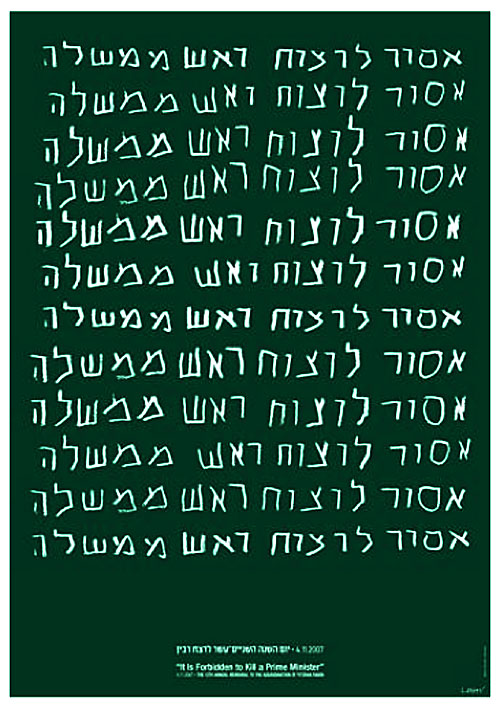 אסור לרצוח ראש ממשלה
אסור לרצוח ראש ממשלה
אסור לרצוח ראש ממשלה
אסור לרצוח ראש ממשלה
אסור לרצוח ראש ממשלה
אסור לרצוח ראש ממשלה
אסור לרצוח ראש ממשלה
אסור לרצוח ראש ממשלה
אסור לרצוח ראש ממשלה
אסור לרצוח ראש ממשלה
אסור לרצוח ראש ממשלה
אסור לרצוח ראש ממשלה
4.11.2007 • יום השנה השניים־עשר לרצח רבין
"It is Forbidden to Kill a Prime Minister"
4.11.2007 • THE 12TH ANNUAL MEMORIAL TO THE ASSASSINATION OF YITZHAK RABIN